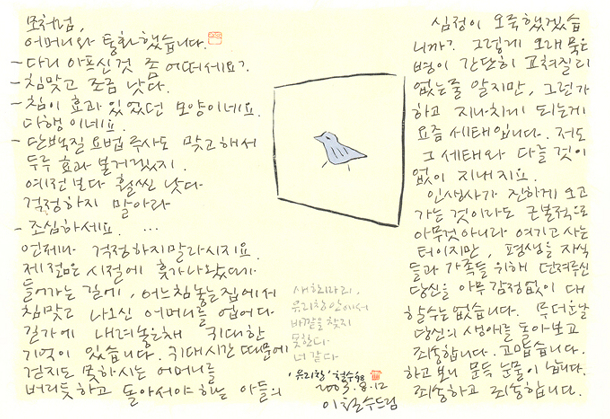 모처럼,
어머니와 통화했습니다.
- 다리 아프신것 좀 어떠세요?
- 침맞고 조금 낫다.
- 침이 효과 있었던 모양이네요.
다행이네요.
- 단백질 요법 주사도 맞고 해서
두루 효과 볼거라지.
예전보다 훨씬 낫다
걱정하지 말아라
- 조심하세요. …
언제나 걱정하지말라시지요.
제 젊은 시절에 휴가나왔다가
들어가는 길에, 어느 침놓는집에서
침맞고 나오신 어머니를 업어다
길가에 내려놓은채 귀대한
기억이 있습니다. 귀대시간 때문에
걷지도 못하시는 어머니를
버리듯하고 돌아서야 하는 아들의
심정이 오죽했겠습
니까? 그렇게 오래 묵은
병이 간단히 고쳐질리
없는줄 알지만, 그런가
하고 지나치게 되는게
요즘 세태입니다. 저도
그 세태와 다를 것이
없이 지내지요.
인생사가 진하게 오고
가는 것이라도 근본적으로
아무것 아니라 여기고 사는
터이지만, 평생을 자식
들과 가족을 위해 던져주신
당신을 아무 감정없이 대
할수는 없습니다. 무더운날
당신의 생애를 돌아보고
죄송합니다. 고맙습니다.
하고 보니 문득 눈물이 납니다.
죄송하고 죄송합니다.
새 한마리,
유리창안에서
바깥을 찾지
못한다
너 같다
'유리창' 철수
2005.8.12
이철수드림